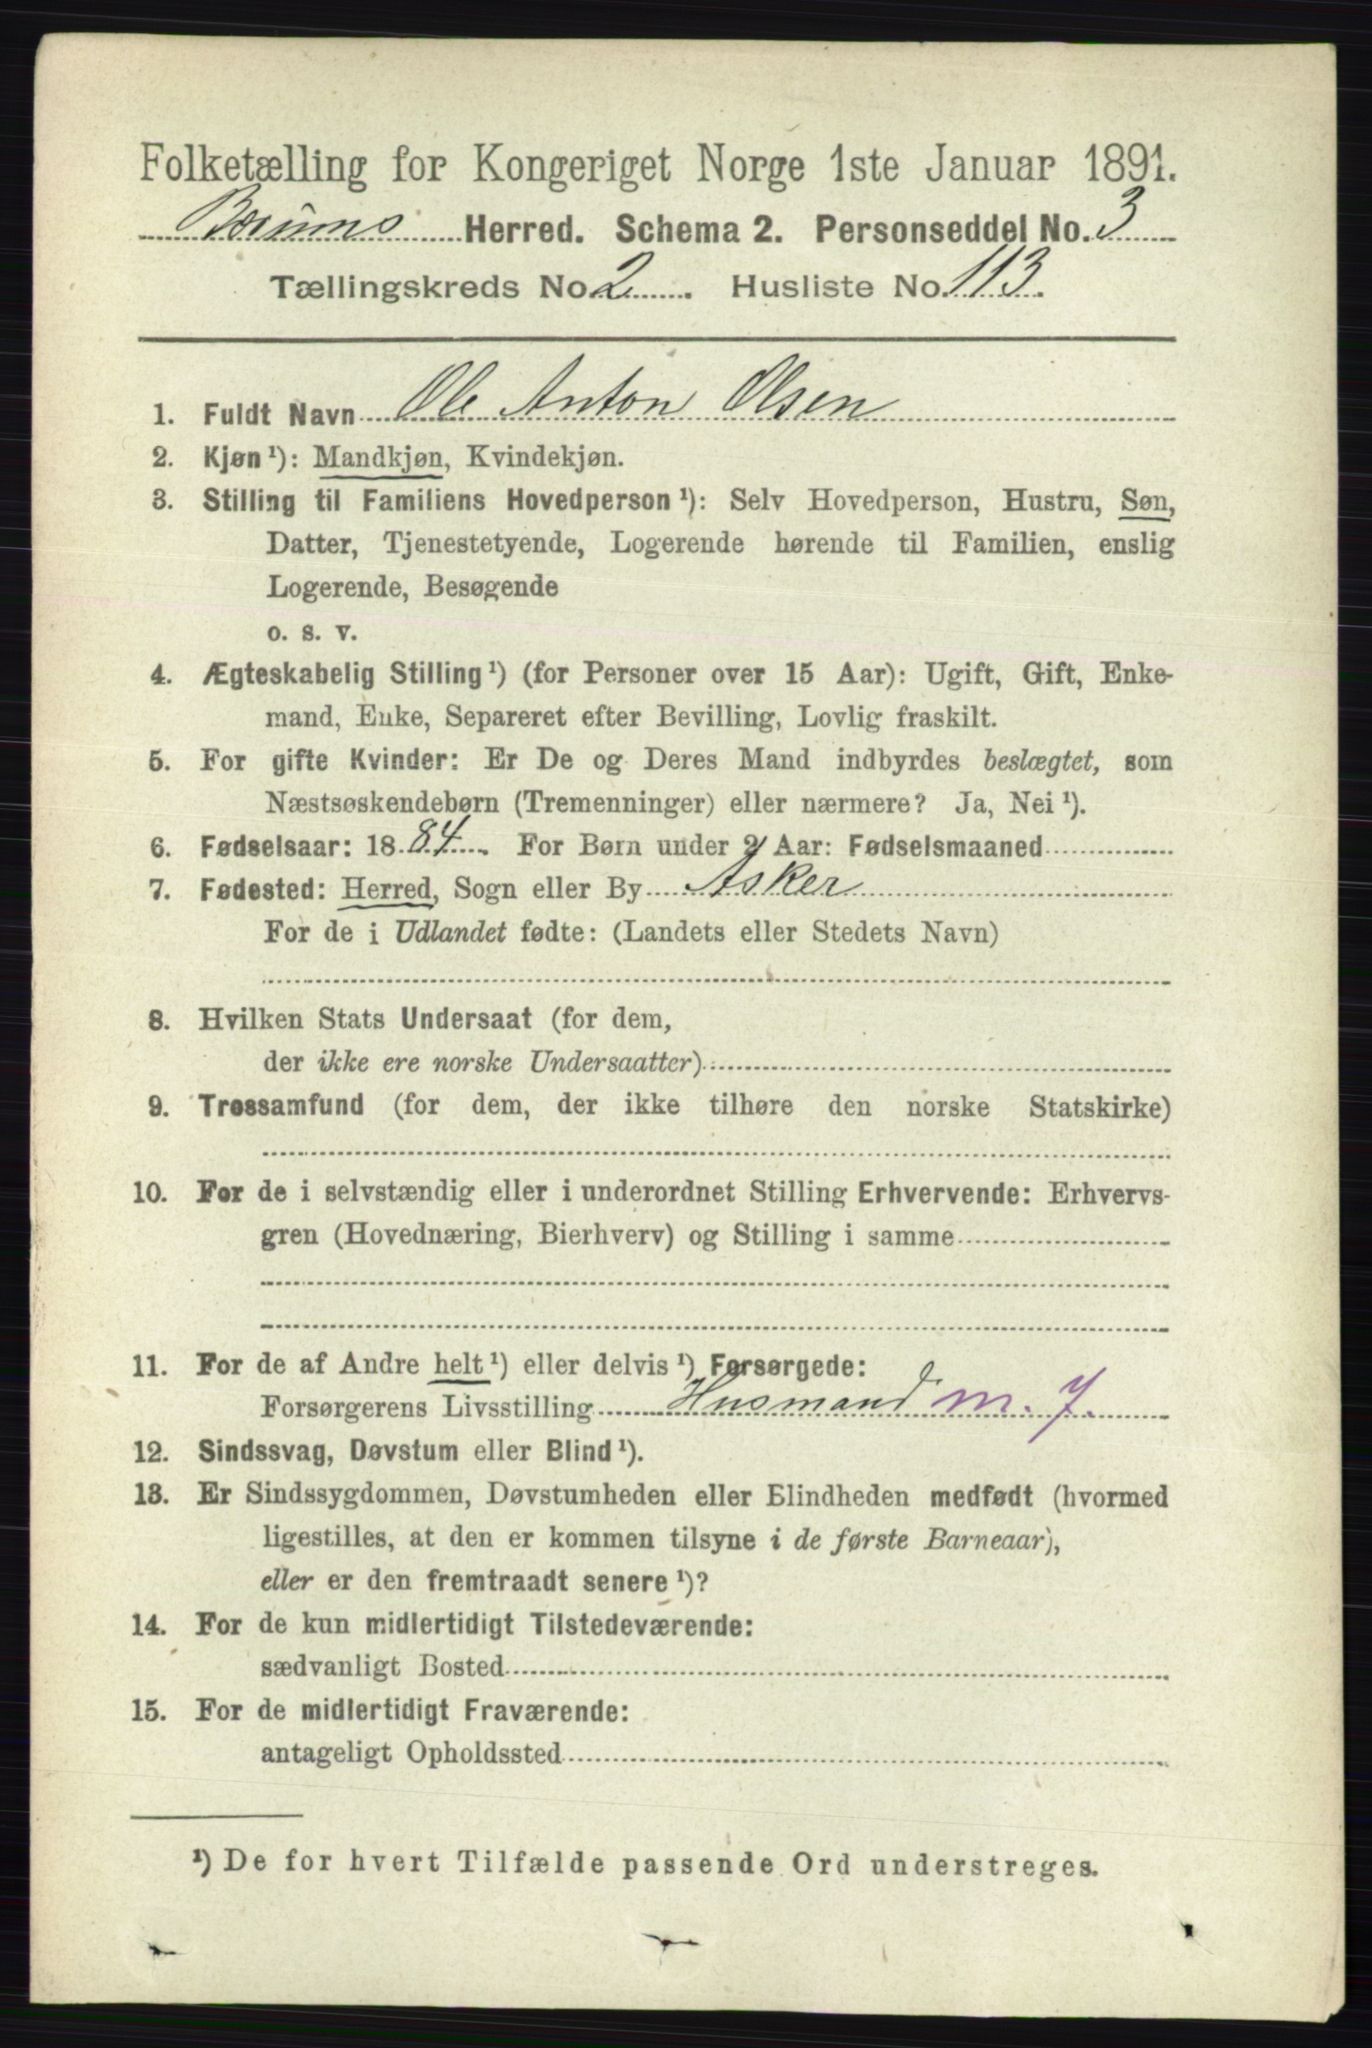 Folketælling for Kongeriget Norge 1ste Januar 1891.
Bærums Herred. Schema 2. Personseddel No. 3
Tællingskreds No. 2. Husliste No. 113.
1. Fuldt Navn Ole Anton Olsen
2. Kjøn¹): Mandkjøn, Kvindekjøn.
3. Stilling til Familiens Hovedperson¹): Selv Hovedperson, Hustru, Søn,
Datter, Tjenestetyende, Logerende hørende til Familien, enslig
Logerende, Besøgende
o. s. v.
4. Ægteskabelig Stilling¹) (for Personer over 15 Aar): Ugift, Gift, Enke-
mand, Enke, Separeret efter Bevilling, Lovlig fraskilt.
5. For gifte Kvinder: Er De og Deres Mand indbyrdes beslægtet, som
Næstsøskendebørn (Tremenninger) eller nærmere? Ja, Nei¹).
6. Fødselsaar: 1884. For Børn under 2 Aar: Fødselsmaaned
7. Fødested: Herred, Sogn eller By Asker
For de i Udlandet fødte: (Landets eller Stedets Navn)
8. Hvilken Stats Undersaat (for dem,
der ikke ere norske Undersaatter)
9. Trossamfund (for dem, der ikke tilhøre den norske Statskirke)
10. For de i selvstændig eller i underordnet Stilling Erhvervende: Erhvervs-
gren (Hovednæring, Bierhverv) og Stilling i samme
11. For de af Andre helt¹) eller delvis¹) Forsørgede:
Forsørgerens Livsstilling Husmand m. J.
12. Sindssvag, Døvstum eller Blind¹).
13. Er Sindssygdommen, Døvstumheden eller Blindheden medfødt (hvormed
ligestilles, at den er kommen tilsyne i de første Barneaar),
eller er den fremtraadt senere¹)?
14. For de kun midlertidigt Tilstedeværende:
sædvanligt Bosted
15. For de midlertidigt Fraværende:
antageligt Opholdssted
¹) De for hvert Tilfælde passende Ord understreges.